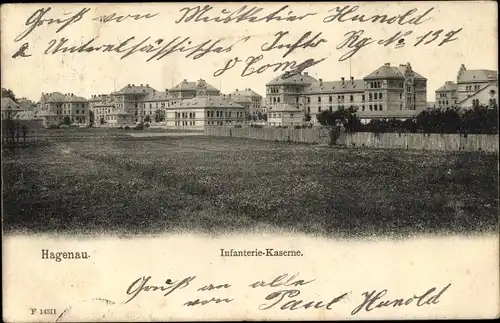 Gruß von Musketier Hunold
2. Unterelsässisches Inftr Rg No. 137
8 Comp.
Hagenau.
Infanterie-Kaserne.
Gruß an alle
von Paul Hunold
F 14311